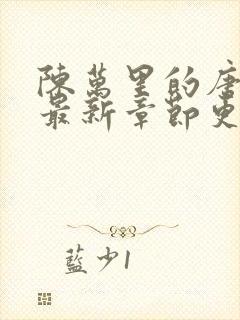 陳萬里的唐
最新章節更
藍少1